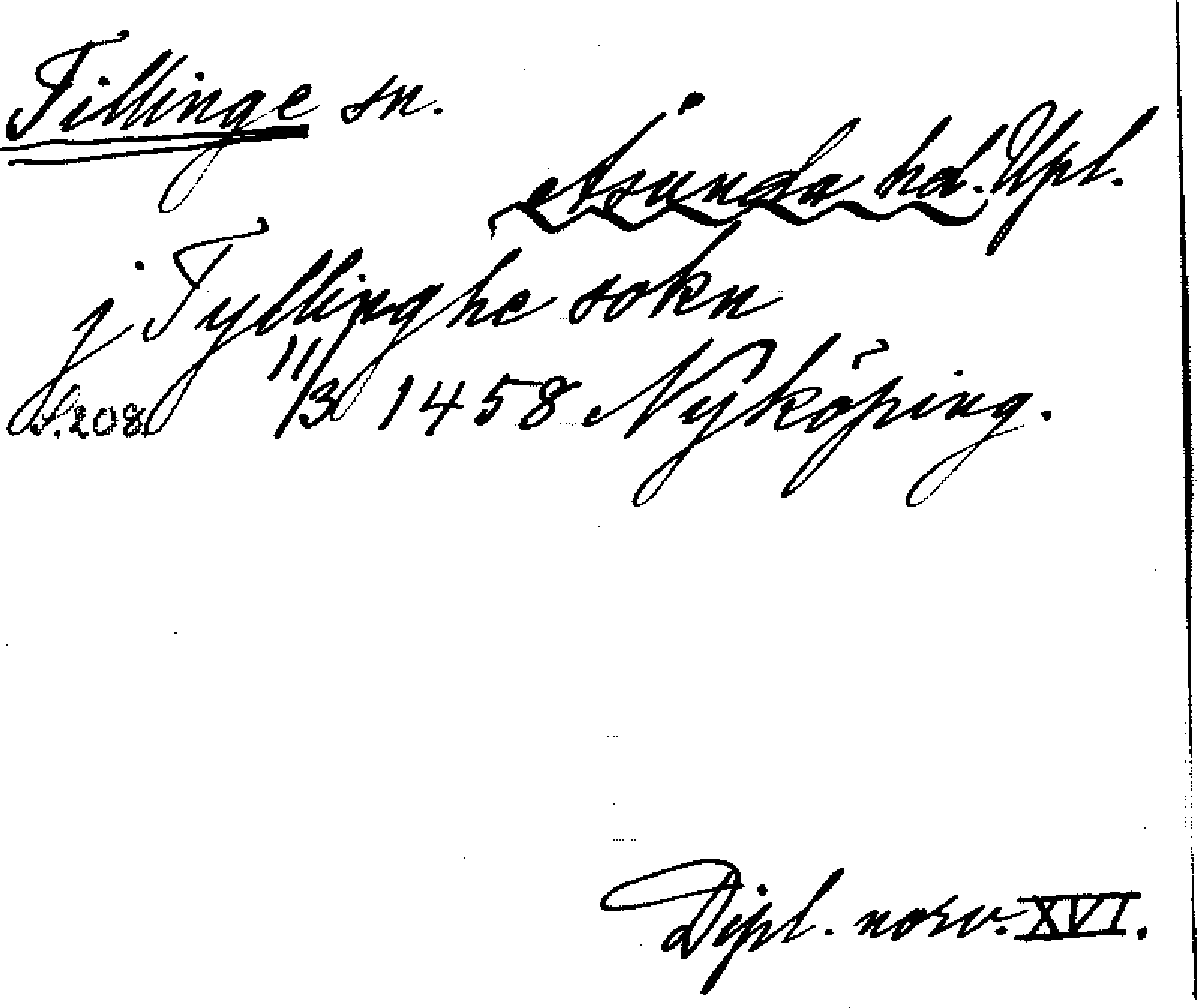 Tillinge sn.
Åsunda hd. Upl.
j Tyllinghe sokn
S. 208 11/3 1458 Nyköping.
Dipl. norv. XVI.